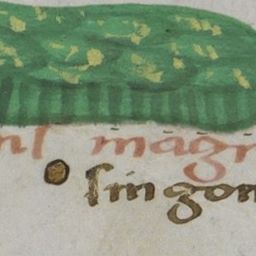 nſ magn
ſingon